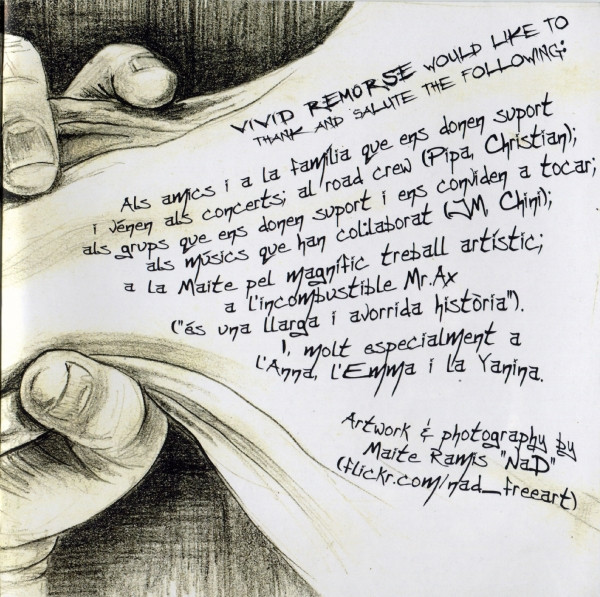 VIVID REMORSE WOULD LIKE TO
THANK AND SALUTE THE FOLLOWING:
Als amics i a la família que ens donen suport
i vénen als concerts; al road crew (Pipa, Christian);
als grups que ens donen suport i ens conviden a tocar;
als músics que han col·laborat (JM, Chini);
a la Maite pel magnífic treball artístic;
a l'incombustible Mr.Ax
("és una llarga i avorrida història").
I, molt especialment a
l'Anna, l'Emma i la Yanina.
Artwork & photography by
Maite Ramis "NaD"
(flickr.com/nad_freeart)